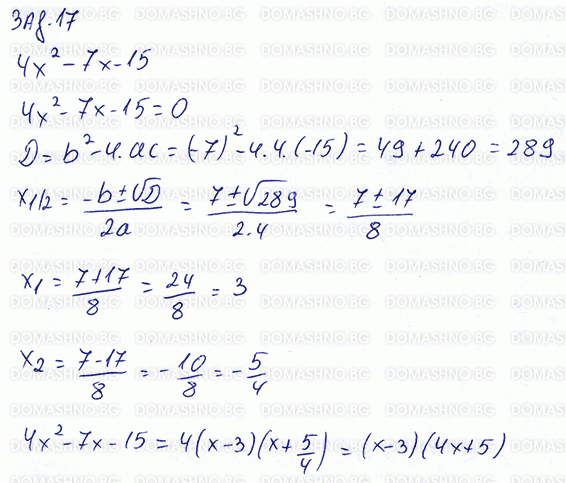 Зад.17
4x² - 7x - 15
4x² - 7x - 15 = 0
D = b² - 4.ac = (-7)² - 4.4.(-15) = 49 + 240 = 289
x1/2 = (-b ± √D)/2a = (7 ± √289)/2.4 = (7 ± 17)/8
x₁ = (7+17)/8 = 24/8 = 3
x₂ = (7-17)/8 = -10/8 = -5/4
4x² - 7x - 15 = 4(x-3)(x+5/4) = (x-3)(4x+5)
DOMASHNO.BG